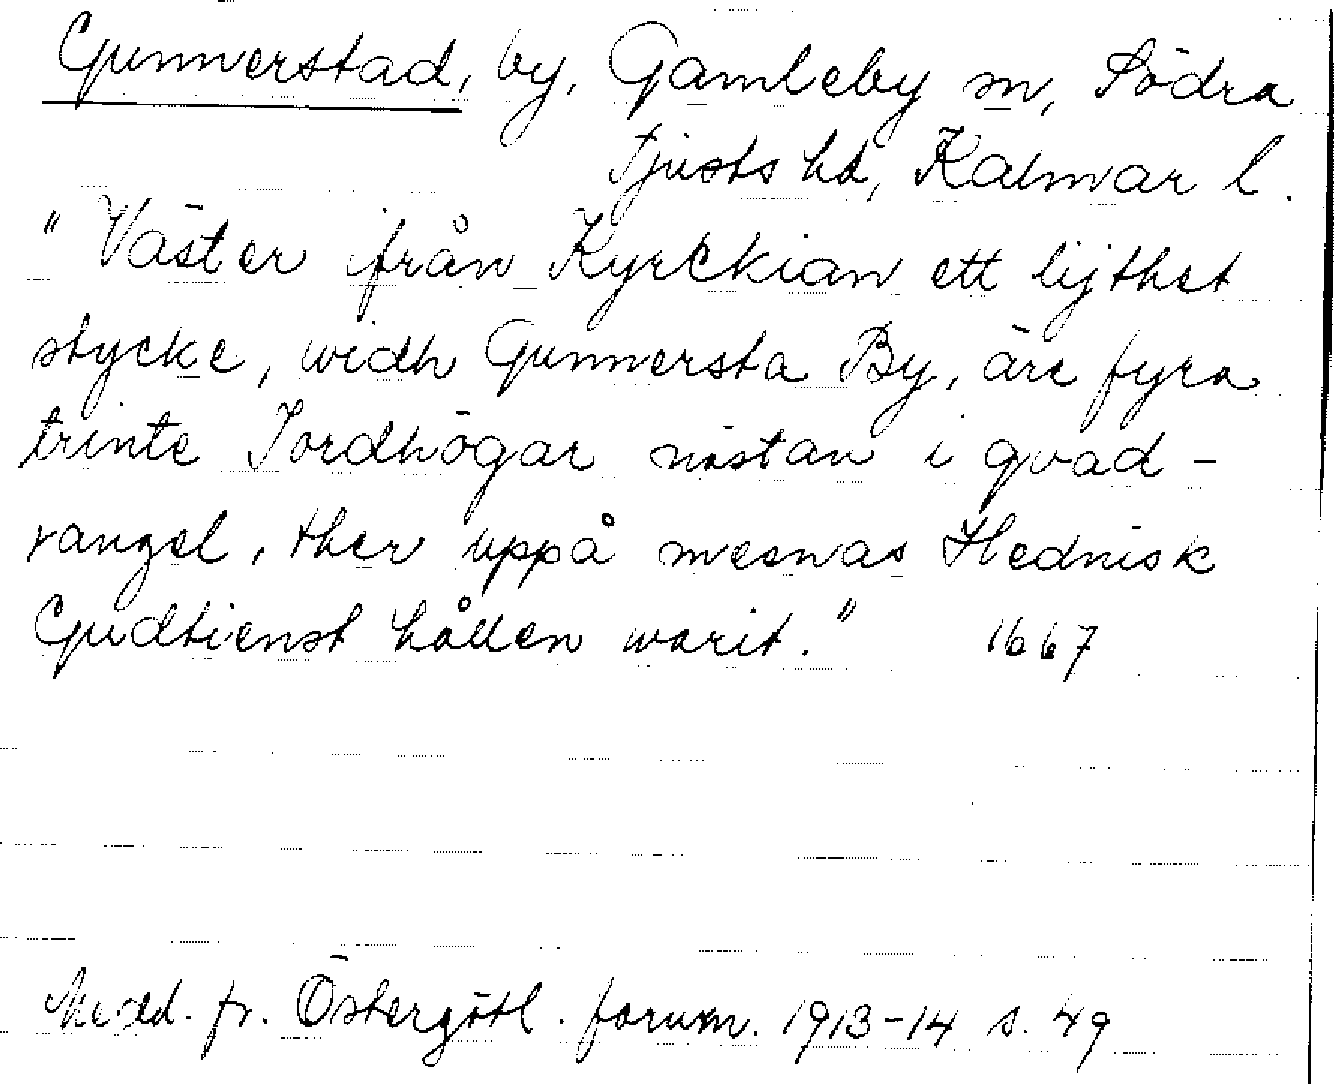 Gunnerstad, by, Gamleby sn, Södra
Tjusts hd, Kalmar l.
"Väster ifrån Kyrckian ett lijthet
stycke, widh Gunnersta By, äre fyra
trinte Jordhögar nästan i qvad-
rangel, ther uppå meenas Hednisk
Gudtienst hållen warit." 1667
Medd. fr. Östergötl. fornm. 1913-14 s. 49